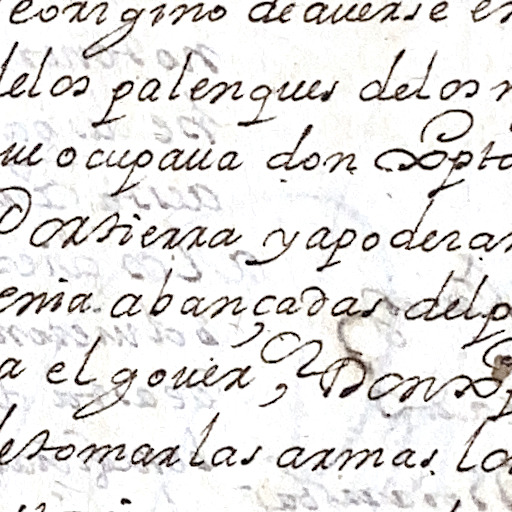 eorigino deauerse en
delos palenques delos n
ue ocupaua don Xpto
Por tierra yapoderar
enia abançadas del p
a el gouer, Don Xp
de tomar las armas. lo